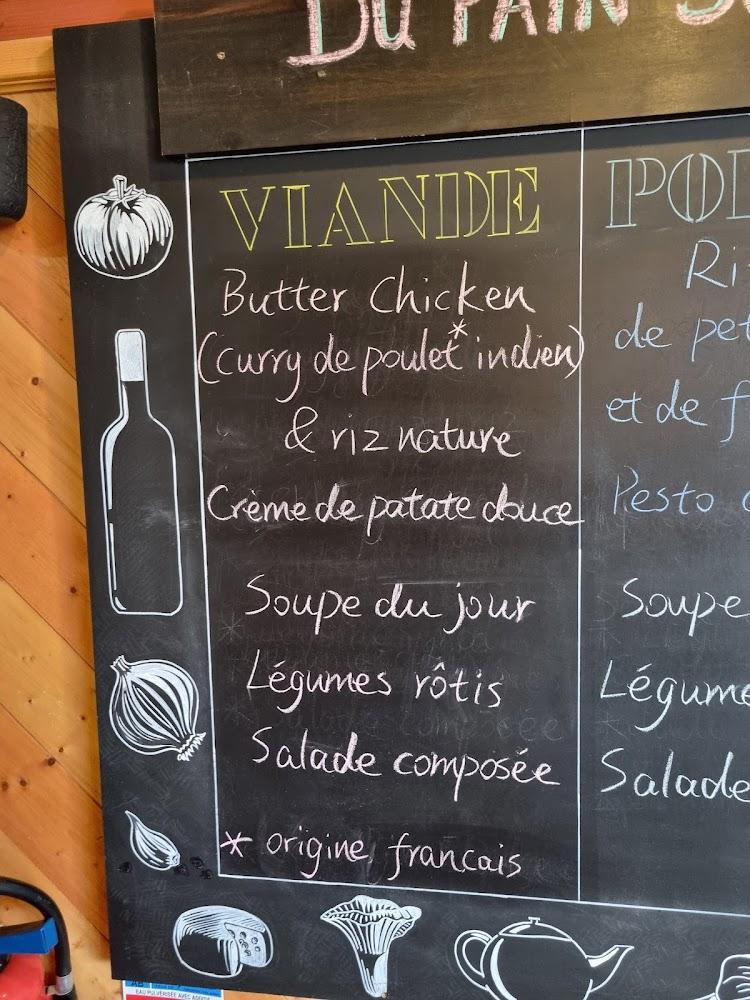 DU PAIN
VIANDE
Butter Chicken
(curry de poulet* indien)
& riz nature
Crème de patate douce
Soupe du jour
Légumes rôtis
Salade composée
* origine francais
Ri
de pet
et de f
Pesto
Soupe
Légume
Salade
EAU PULVERISÉE AVEC ADDITIF